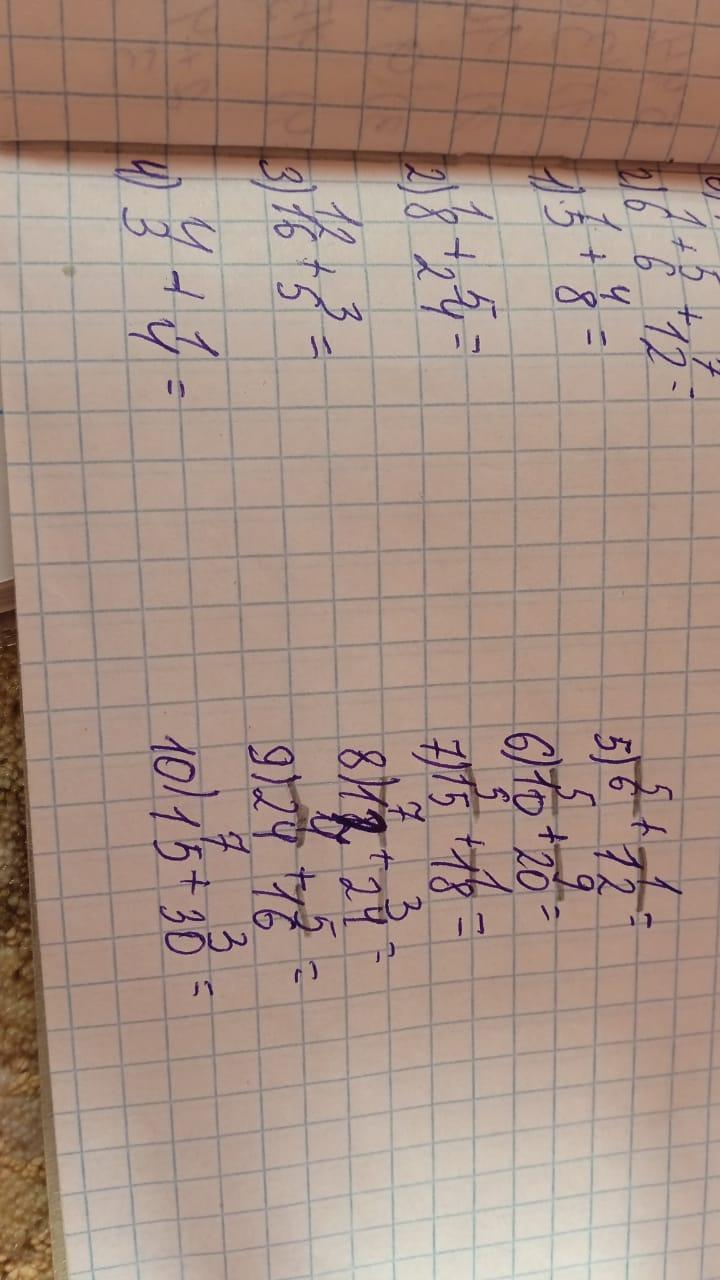 2) 1/6 + 5/6 + 7/12 =
1) 1/5 + 4/8 =
2) 1/8 + 5/24 =
3) 12/16 + 3/5 =
4) 4/3 + 1/4 =
5) 5/6 + 1/12 =
6) 5/10 + 9/20 =
7) 5/15 + 1/18 =
8) + 3/24 =
9) + 5/16 =
10) 7/15 + 3/30 =